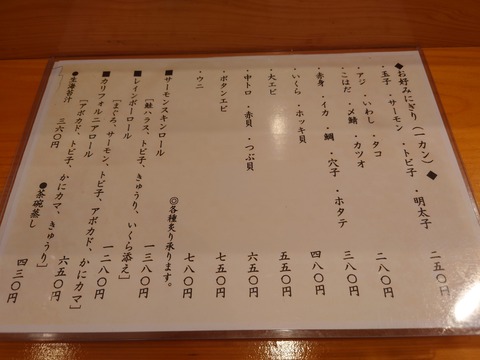 ◆お好みにぎり(一カン)◆
・玉子 ・サーモン ・トビ子 ・明太子 二五〇円
・アジ ・いわし ・タコ
・こはだ ・〆鯖 ・カツオ 二八〇円
・赤身 ・イカ ・鯛 ・穴子 ・ホタテ 三八〇円
・いくら ・ホッキ貝 四八〇円
・大エビ 五五〇円
・中トロ ・赤貝 ・つぶ貝 六五〇円
・ボタンエビ 七五〇円
・ウニ 七八〇円
◎各種炙り承ります。
■サーモンスキンロール
[鮭ハラス、トビ子、きゅうり、いくら添え] 一三八〇円
■レインボーロール
[まぐろ、サーモン、トビ子、アボカド、かにカマ] 一二八〇円
■カリフォルニアロール
[アボカド、トビ子、かにカマ、きゅうり] 六五〇円
●生海苔汁 三六〇円 ●茶碗蒸し 四三〇円